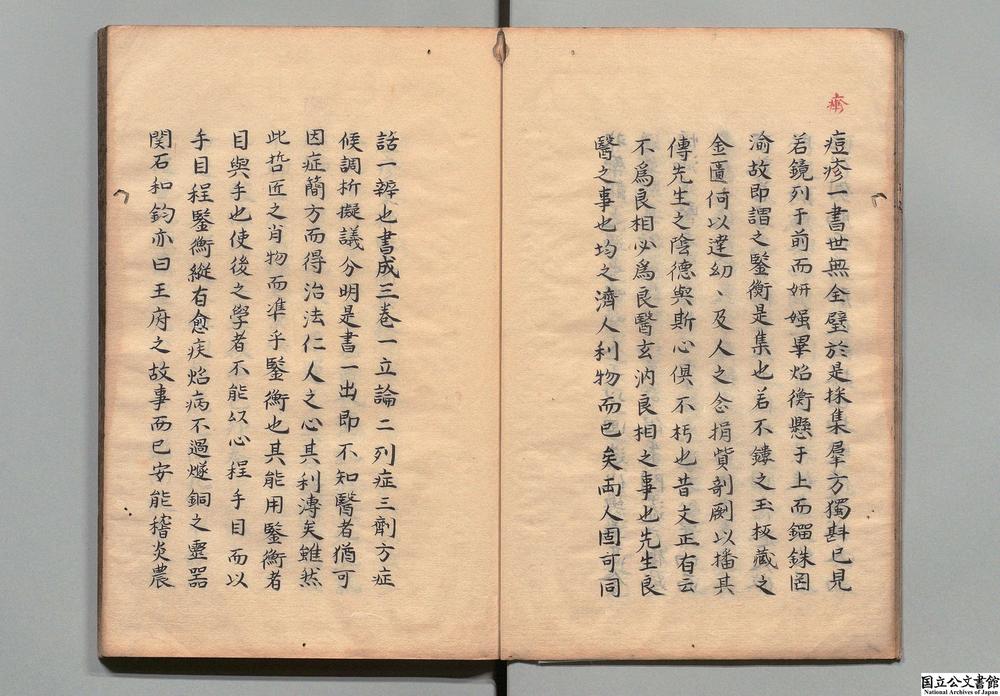 瘄
痘疹一書世無全璧於是採集羣方獨斟已見
若鏡列于前而妍媸畢焰衡懸于上而錙銖罔
渝故即謂之鑒衡是集也若不鏤之玉板藏之
金匱何以達幼〻及人之念捐貲剞劂以播其
傳先生之陰德與斯心俱不朽也昔文正有云
不爲良相必爲良醫玄汭良相之事也先生良
醫之事也均之濟人利物而已矣両人固可同
話一辨也書成三巻一立論二列症三劑方症
候調析擬議分明是書一出即不知醫者猶可
因症簡方而得治法仁人之心其利溥矣雖然
此哲匠之肖物而準乎鑒衡也其能用鑒衡者
目與手也使後之學者不能以心程手目而以
手目程鑒衡縱有愈疾焰病不過燧銅之靈器
関石和鈞亦曰王府之故事而已安能稽炎農
国立公文書館
National Archives of Japan